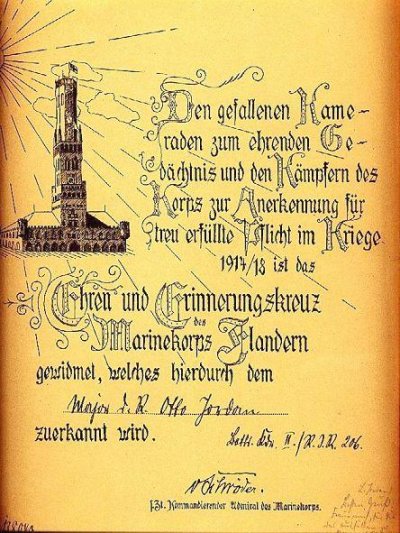 Den gefallenen Kame-
raden zum ehrenden Ge-
dächtnis und den Kämpfern des
Korps zur Anerkennung für
treu erfüllte Pflicht im Kriege
1914/18 ist das
Ehren und Erinnerungskreuz
des
Marinekorps Flandern
gewidmet, welches hierdurch dem
Major d. R. Otto Jordan
zuerkannt wird.
Batl. Kdr. II./R.I.R. 206.
v Schröder.
z. Zt. Kommandierender Admiral des Marinekorps.